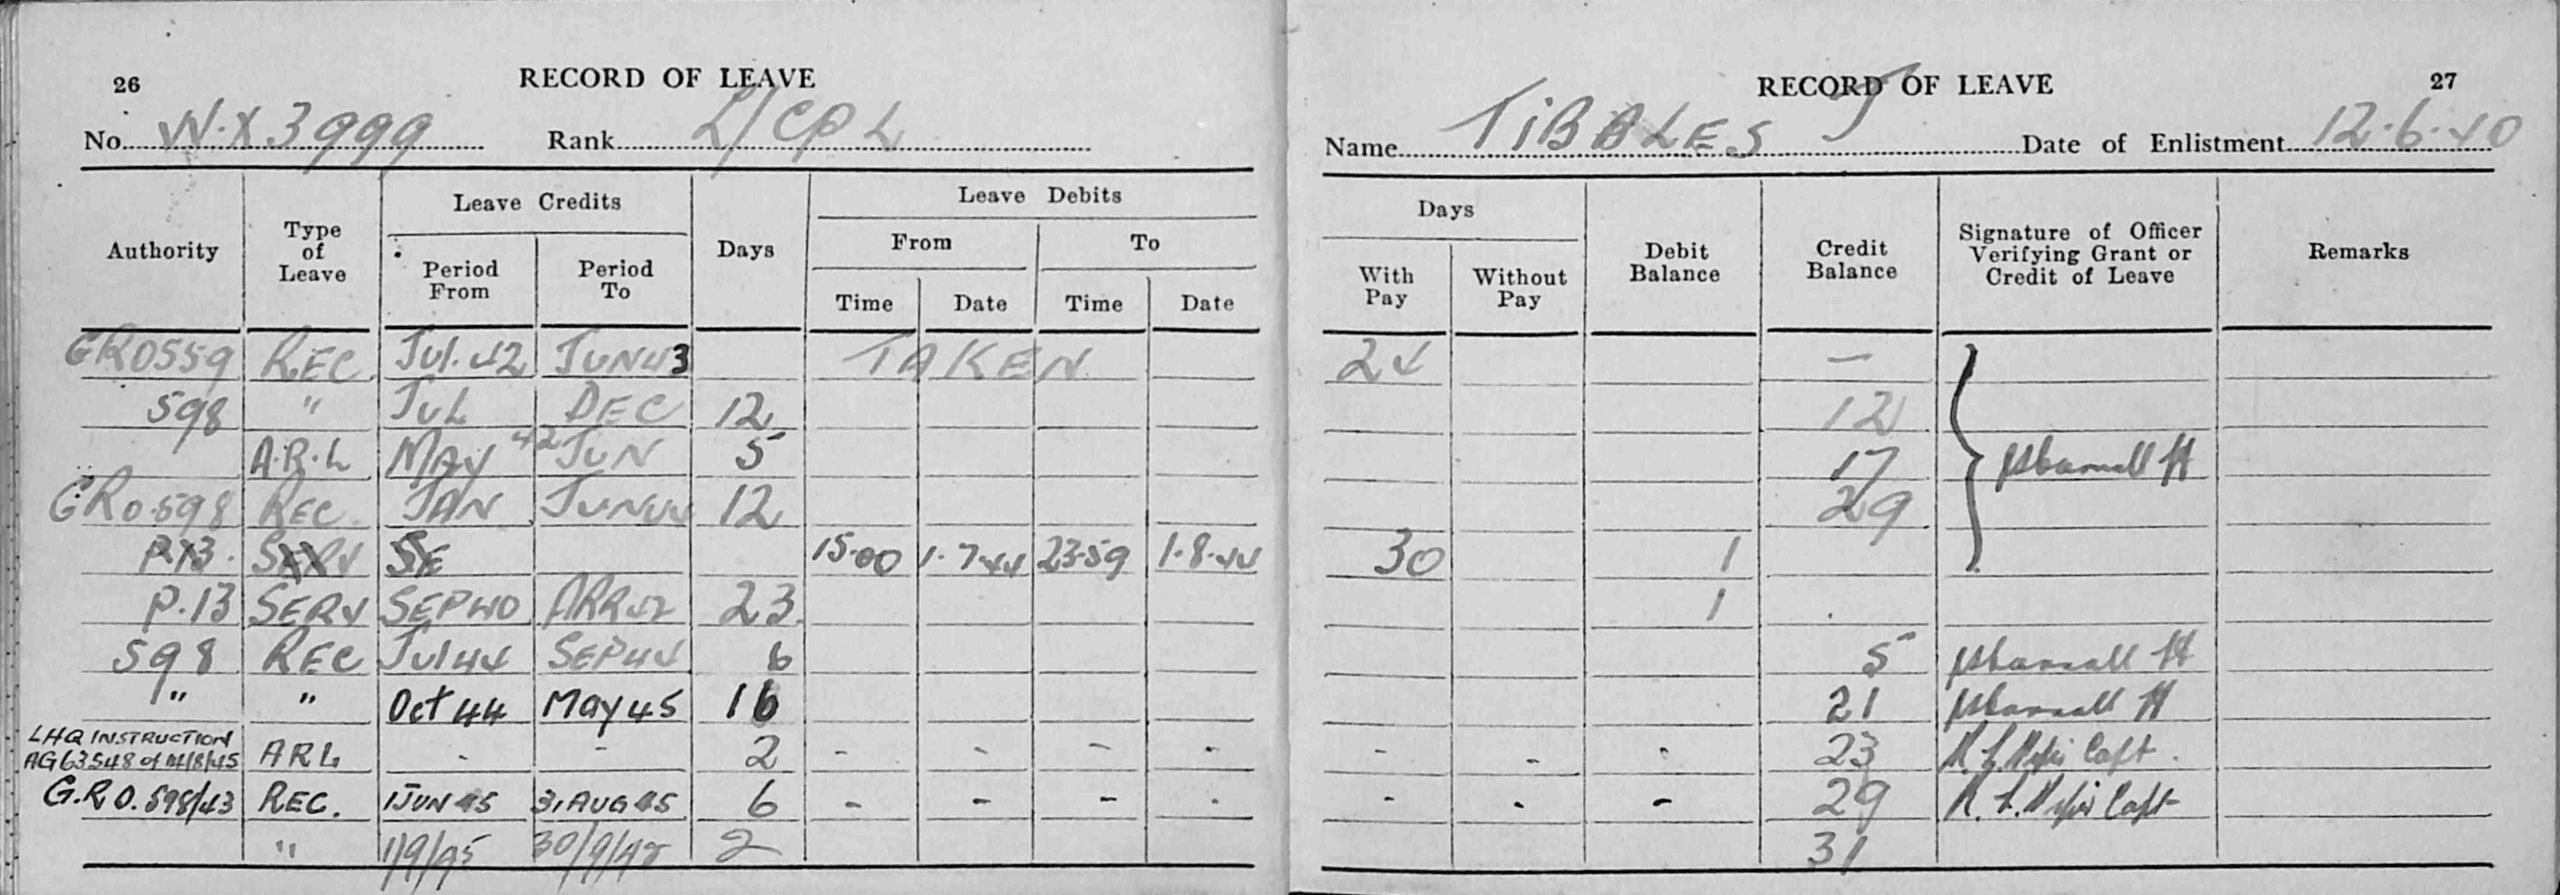 26 RECORD OF LEAVE
No. W.X3999 Rank L/CPL
Authority Type of Leave Leave Credits Period From Period To Days Leave Debits From Time Date To Time Date
GRO559 REC JUL.42 JUN43 TAKEN
598 " JUL DEC 12
A.R.L MAY 42 JUN 5
GRO.598 REC JAN JUN44 12
P.13. SERV SE 15.00 1.7.44 23.59 1.8.44
P.13 SERV SEP40 APR42 23
598 REC JUL44 SEP44 6
" " Oct 44 May 45 16
LHQ INSTRUCTION
AG63548 of 14/8/45 ARL - - 2 - - - -
G.R.O. 598/43 REC. 1 JUN 45 31 AUG 45 6 - - - -
" 1/9/45 30/9/45 2
RECORD OF LEAVE 27
Name TIBBLES J Date of Enlistment 12.6.40
Days With Pay Without Pay Debit Balance Credit Balance Signature of Officer Verifying Grant or Credit of Leave Remarks
24 —
12
17 Lt
29
30 1
1
5 Lt
21 Lt
- - - 23 Capt.
- - - 29 Capt
31